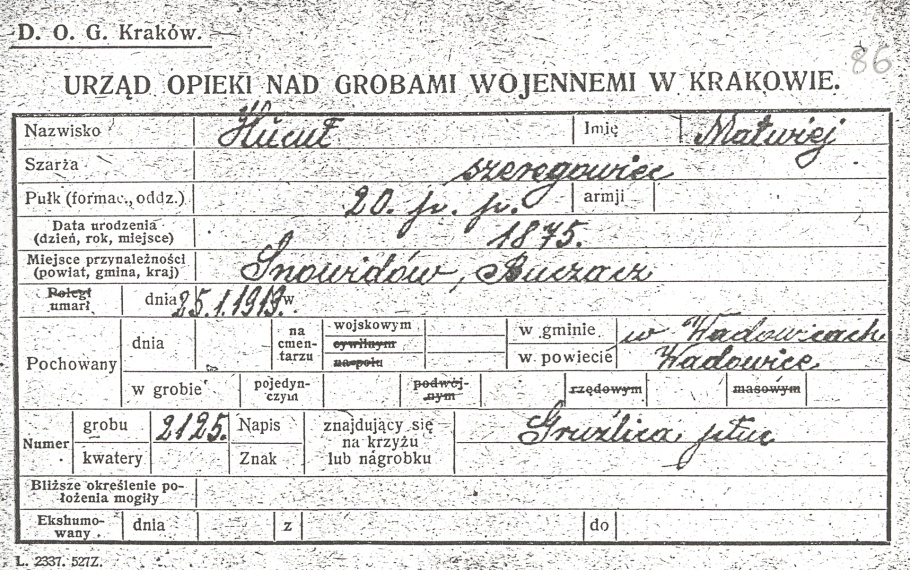 D. O. G. Kraków.
86
URZĄD OPIEKI NAD GROBAMI WOJENNEMI W KRAKOWIE.
Nazwisko Hucuł Imię Matwiej
Szarża szeregowiec
Pułk (formac., oddz.) 20. p. p. armji
Data urodzenia
(dzień, rok, miejsce) 1875.
Miejsce przynależności
(powiat, gmina, kraj) Snowidów, Buczacz
Poległ
umarł dnia 25.1.1919. w
Pochowany dnia na cmen-tarzu wojskowym cywilnym na polu w gminie w Wadowicach
w powiecie Wadowice
w grobie pojedyn-czym podwój-nym rzędowym masowym
Numer grobu 2125. Napis znajdujący się
kwatery Znak na krzyżu
lub nagrobku Gruźlica płuc
Bliższe określenie po-
łożenia mogiły
Ekshumo-
wany dnia z do
L. 2337. 527Z.